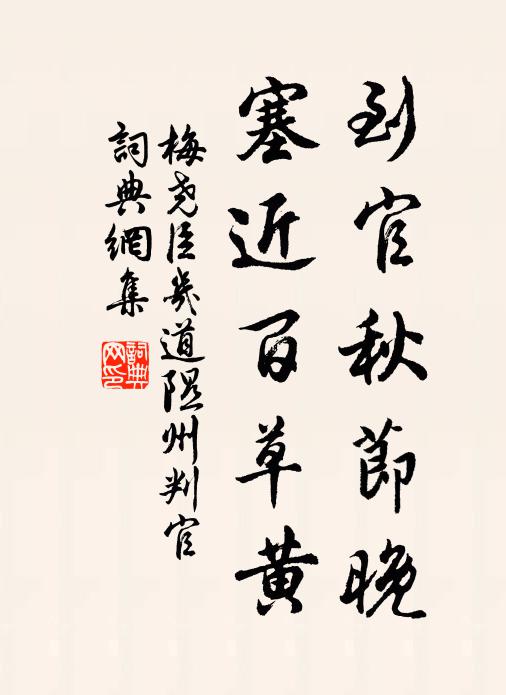 到官秋節晚
塞近百草黄
梅尧臣裴道隰州判官
詞典網集
詞典
网印